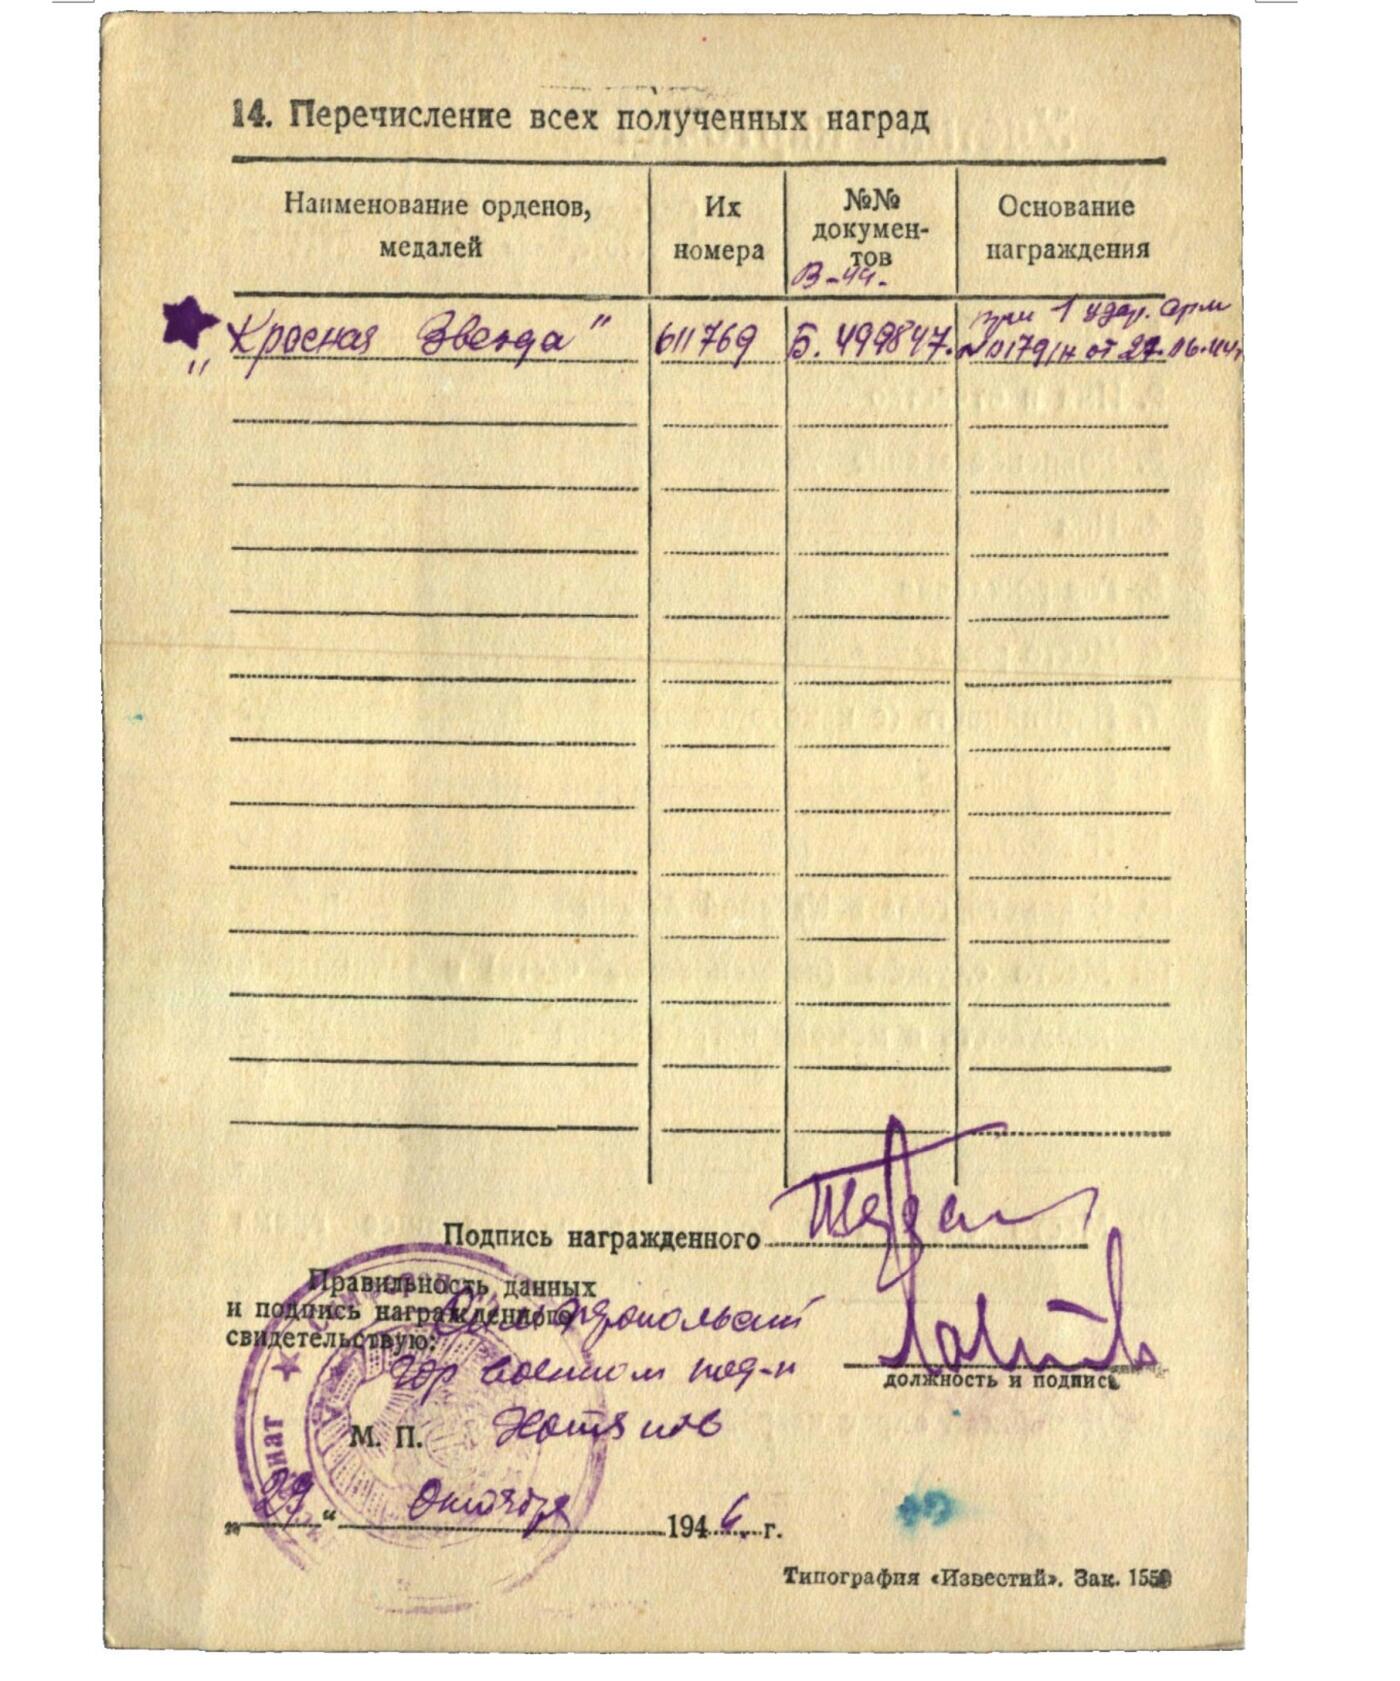 14. Перечисление всех полученных наград
Наименование орденов,
медалей
Их
номера
№№
докумен-
тов
Основание
награждения
В-44.
"Красная Звезда"
611769
Б. 499847.
1 удар. арм
№ 0179/н от 27.06.44г
Подпись награжденного
Правильность данных
и подпись награжденного
свидетельствую:
гор военком
должность и подпись
М. П.
„ 29 " Октября 1946 г.
Типография «Известий». Зак. 1550